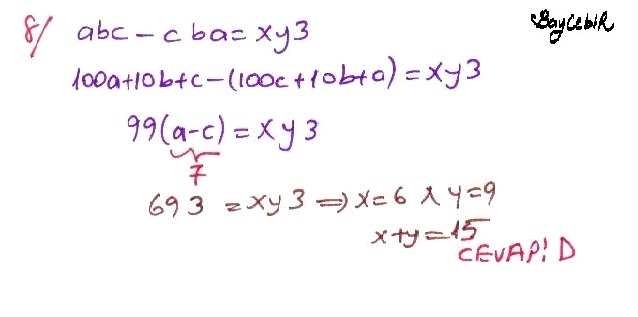 8/ abc - cba = xy3
BayCebiR
100a+10b+c-(100c+10b+a) = xy3
99(a-c) = xy3
7
693 = xy3 ⇒ x=6 ∧ y=9
x+y=15
CEVAP! D